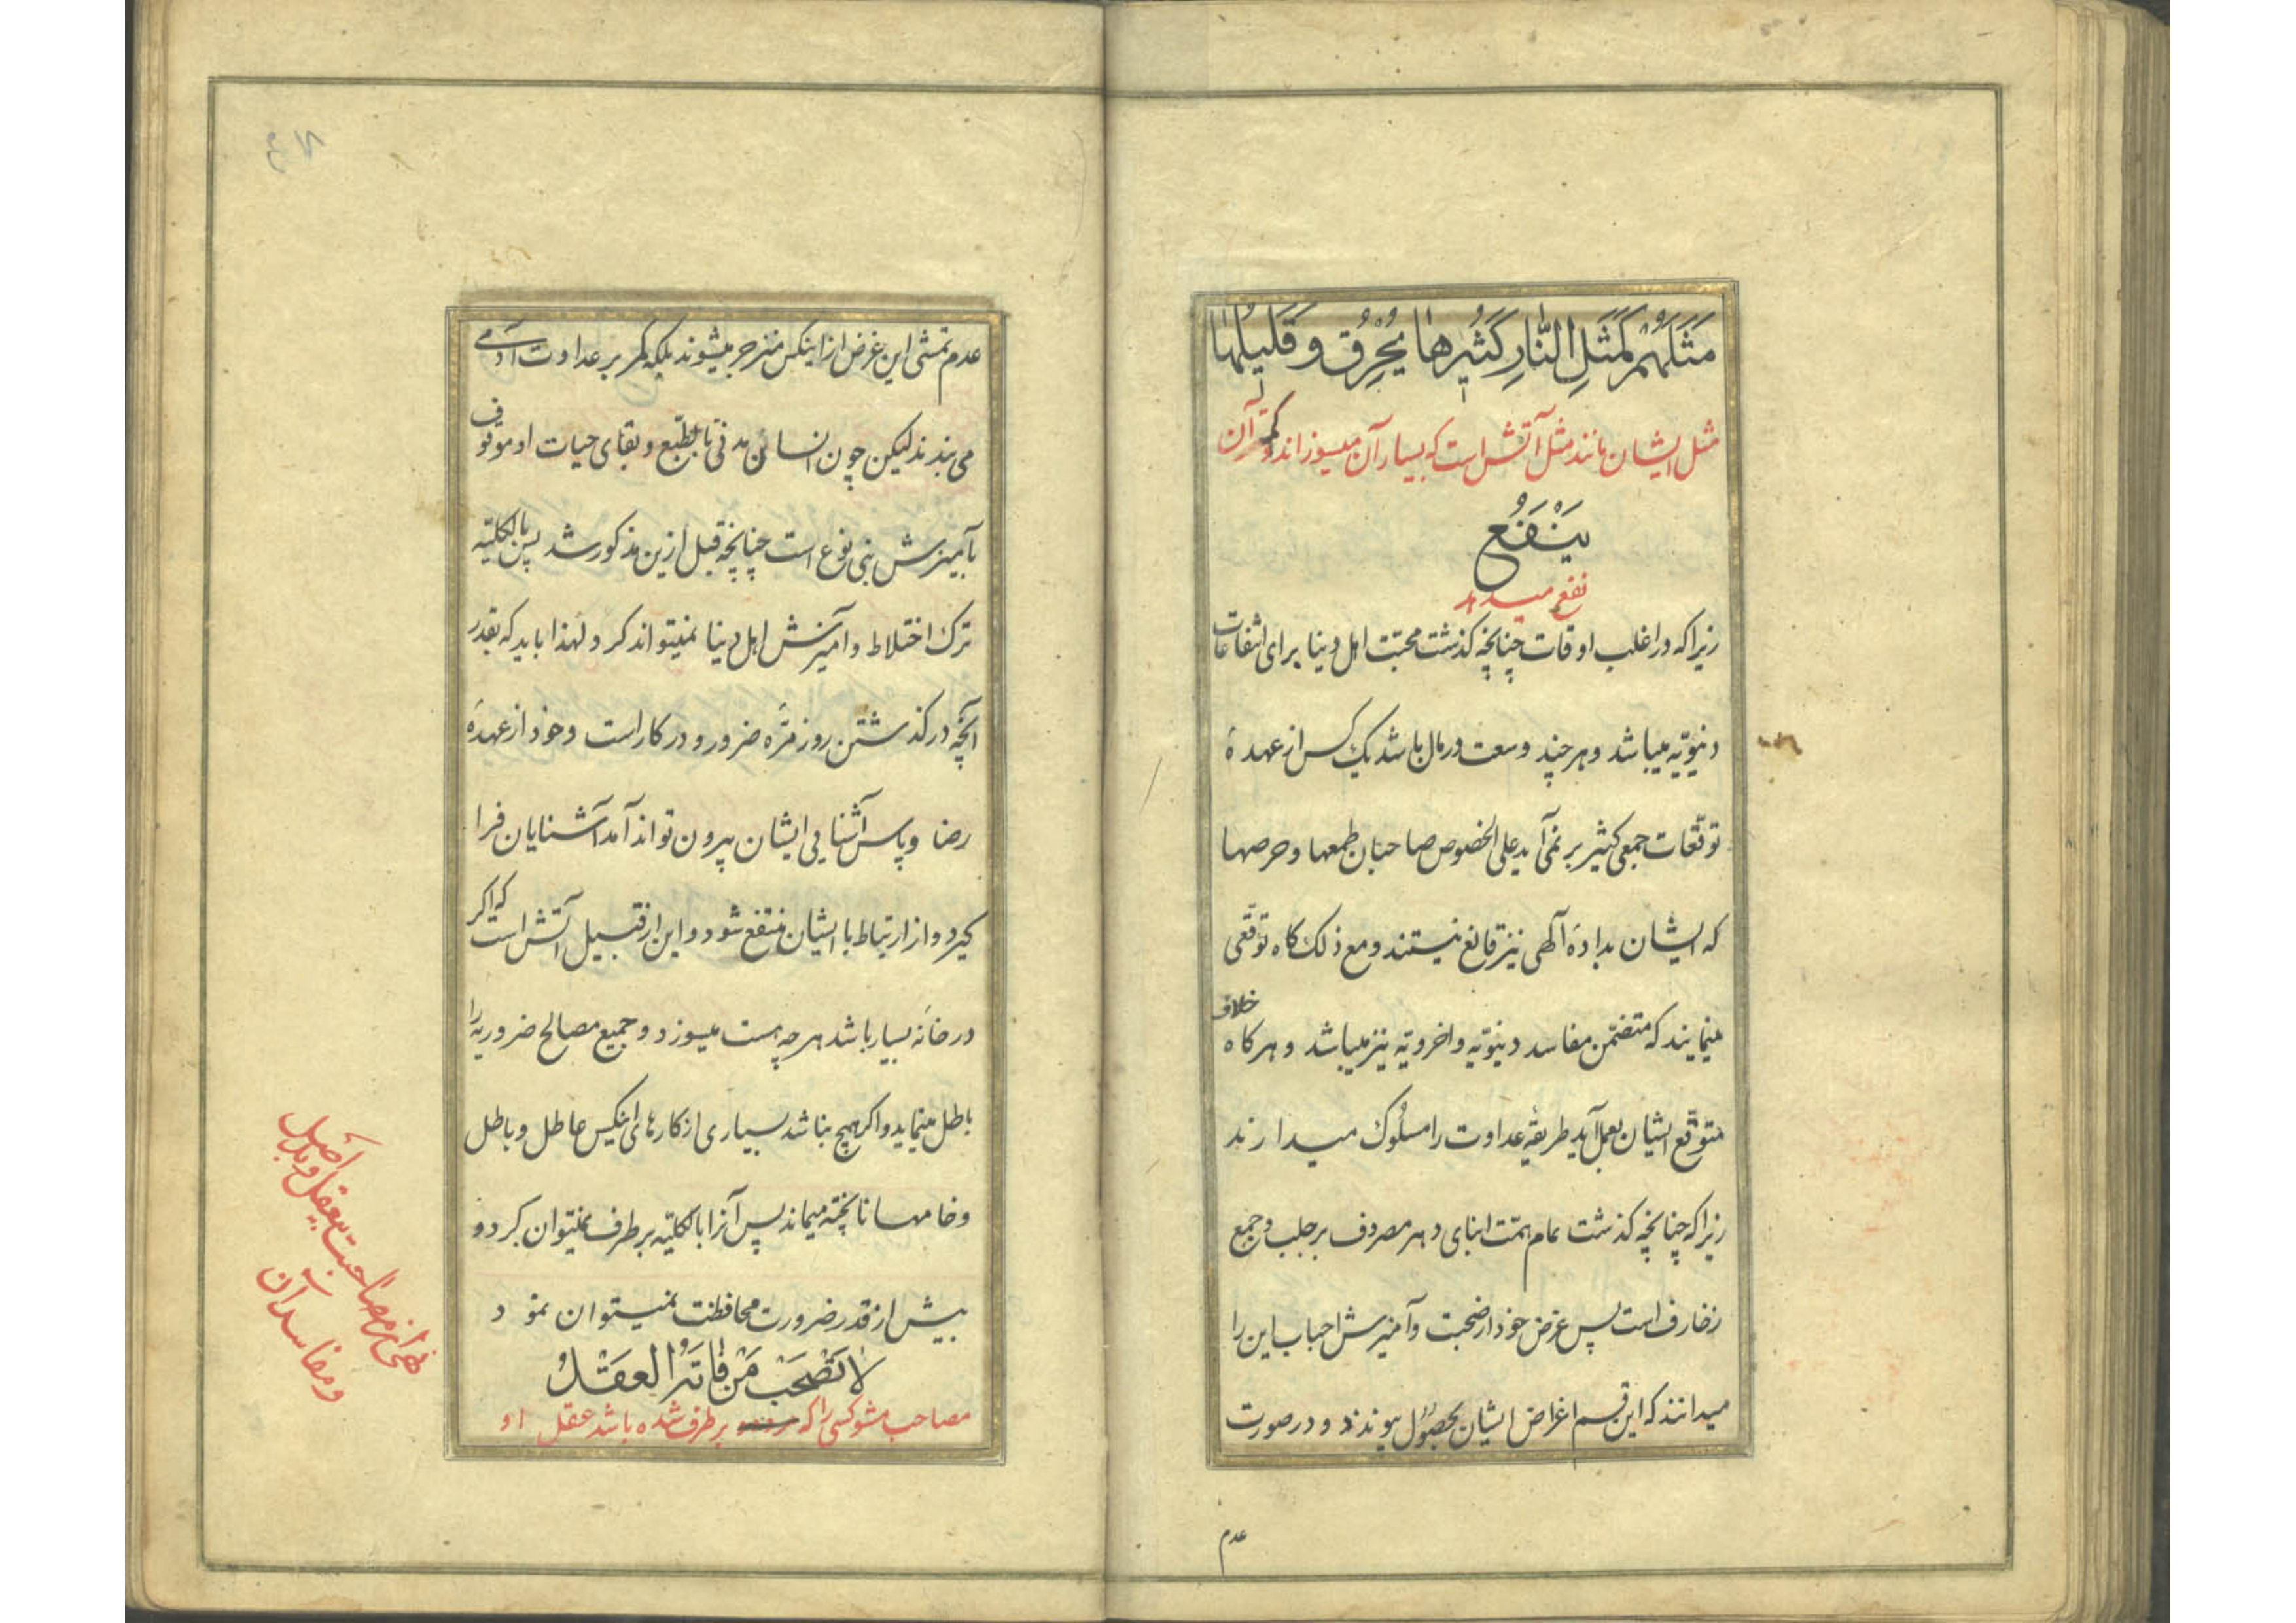 مَثَلُهُمْ كَمَثَلِ النَّارِ كَثيرُها يُحْرِقُ وَ قَليلُها
مثل ایشان مانند مثل آتش است که بسیار آن میسوزاند و کمتر آن
يَنْفَعُ
نفع میدهد
زیرا که در اغلب اوقات چنانچه کذشت محبّت اهل دینا برای انتفاعات
دنیویّه میباشد و هر چند وسعت در مال باشد یک کس از عهدهٔ
توقّعات جمعی کثیر بر نمی‌آید علی الخصوص صاحبان طمعها و حرصها
که ایشان بدادهٔ آلهی نیز قانع نیستند و مع ذلک کاه توقّعی
مینمایند که متضمّن مفاسد دنیویّه و اخرویّه نیز میباشد و هر کاه خلاف
متوقّع ایشان بعمل آید طریقهٔ عداوت را مسلوک میدارند
زیرا که چنانچه کذشت تمام همّت ابنای دهر مصروف بر جلب و جمع
زخارف است پس غرض خود از صحبت و آمیزش احباب این را
میدانند که این قسم اغراض ایشان بحصول پیوندد و در صورت
عدم
عدم تمشی این غرض از اینکس منزجر میشوند بلکه کمر بر عداوت آدمی
می بندند لیکن چون انسان مدنی بالطّبع و بقای حیات او موقوف
بآمیزش بنی نوع است چنانچه قبل ازین مذکور شد پس بالکلیّه
ترک اختلاط و آمیزش اهل دینا نمیتواند کرد و لهذا باید که بقدر
آنچه در کذشتن روزمرّه ضرور و در کار است و خود از عهدهٔ
رضا و پاس آشنایی ایشان بیرون تواند آمد آشنایان فرا
کیرد و از ارتباط با ایشان منتفع شود و این از قبیل آتش است که اکر
در خانه بسیار باشد هر چه هست میسوزد و جمیع مصالح ضروریه را
باطل مینماید و اکر هیچ نباشد بسیاری از کارهای اینکس عاطل و باطل
و خامها ناپخته میماند پس آنرا بالکلیّه بر طرف نمیتوان کرد و
بیش از قدر ضرورت محافظت نمیتوان نمود
لا تَصْحَبْ مَنْ فاتَهُ العَقْلُ
مصاحب مشو کسی را که بر طرف شده باشد عقل او
نهی از مصاحبت بیعقل و بد اصل
و مفاسد آن